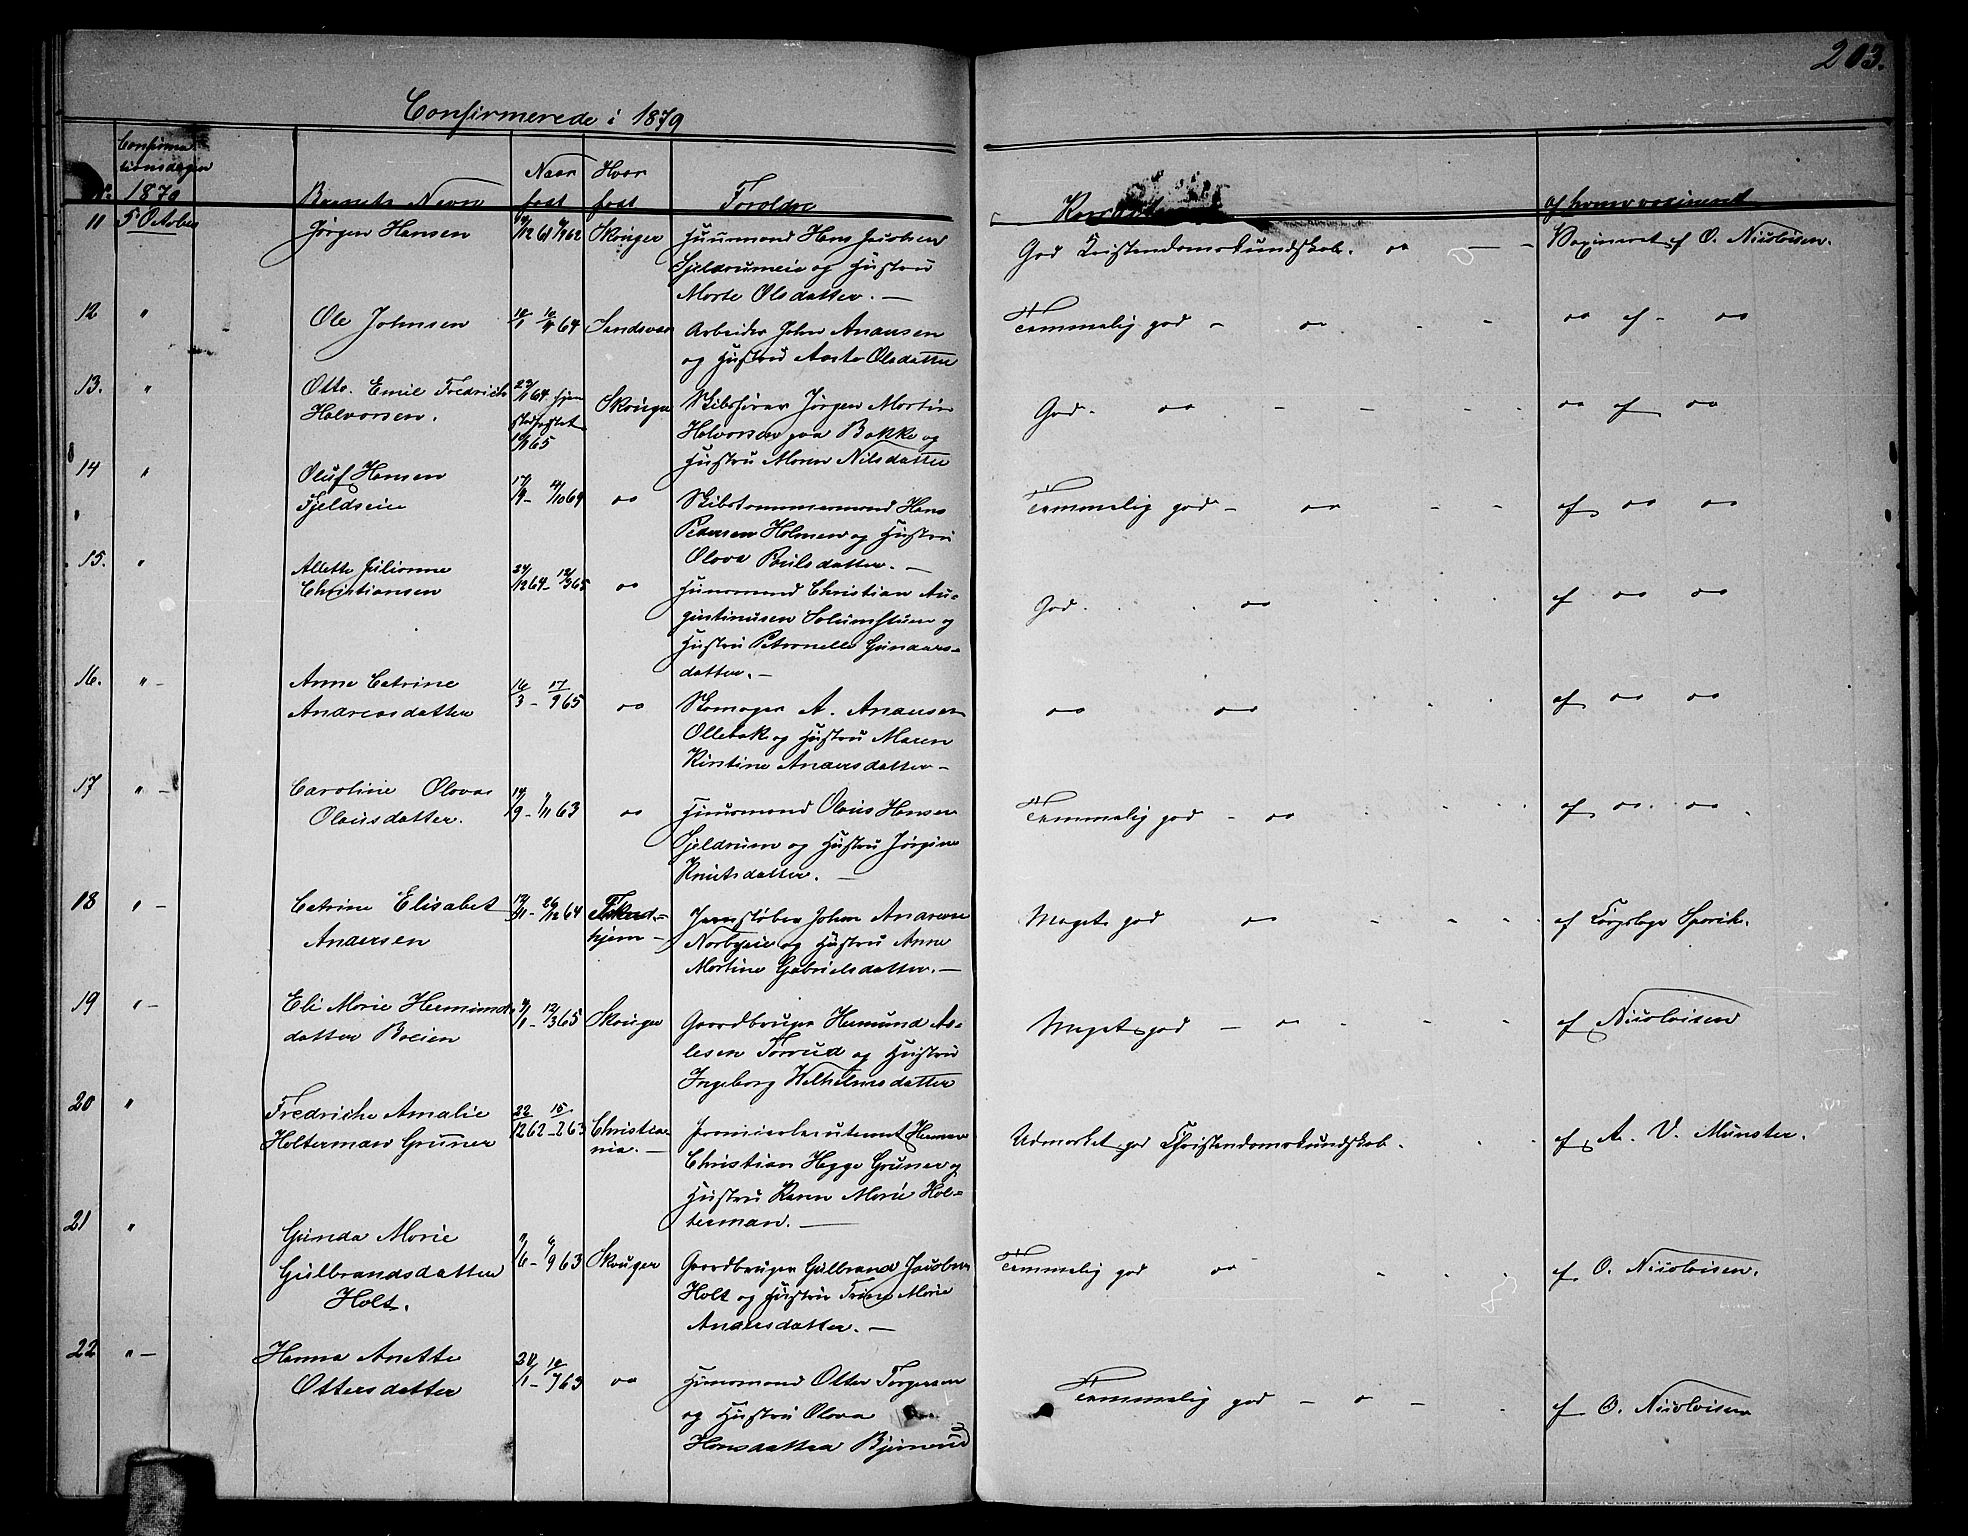 203.
Confirmerede i 1879
Confirma
tionsdagen
No. 1879
Barnets Navn
Naar
født
Hvor
født
Forældre
Karakter
af hvem vaccineret
11 5 October Jørgen Hansen Skouger Huusmand Hans Jacobsen
Fjeldrumeie og Hustru
Marte Olsdatter. —
God Kristendomskundskab. — Vaccineret af O. Nicolaisen.
12 " Ole Johnsen 64 Sandsvær Arbeider John Andersen
og Hustru Olsdatter
Temmelig god - " - - " af - "
13. " Otto Emil Fredrich
Halvorsen. 64 hjem
1865 Skouger Skibsfører Jørgen Martin
Halvorsen paa Bakke og
Hustru Maren Nilsdatter
God. " - - - " af "
14 " Oluf Hansen
Fjeldseie 17/9 - 64 " Skibstømmermand Hans
Pedersen Holmen og Hustru
Olava Paulsdatter. —
Temmelig god - " - - af " "
15. " Alette Julianne
Christiansen 24/12 64 - 12/3 65 " Huusmand Christian Au-
gustinusen Solumstuen og
Hustru Petronelle Gunders-
datter. —
God. " af " "
16. " - Anne Catrine
Andreasdatter 16/3 - 17/9 65 " Skomager A. Andersen
Ollebak og Hustru Maren
Kirstine Andersdatter —
" " af " "
17 " - Caroline Olava
Olausdatter. 14/9 - 1/11 63 " Huusmand Olaus Hansen
Fjeldrum og Hustru Jørgine
Knutsdatter. —
Temmelig god - " af " "
18 " - Catrine Elisabet
Andersen 26/12 64 hjem - Jernstøber Johan Andersen
Norbyeie og Hustru Anne
Martine Gabrielsdatter. —
Meget god " - - - af
19 " - Eli Marie Hermunds-
datter Boeien 12/3 65 Skouger Gaardbruger Hermund As-
lesen Tørrud og Hustru
Ingeborg Wilhelmsdatter
Meget god - " - - - af Nicolaisen
20 " Fredriche Amalie
Holterman Gruner 22/12 62 - 15/2 63 Christia-
nia. — Premierleutenant Herman
Christian Hegge Gruner og
Hustru Karen Marie Hol-
terman. —
Udmærket god Christendomskundskab. af A. V. Münster.
21 " Gunda Marie
Gulbrandsdatter
Holt. 6/9 63 Skouger Gaardbruger Gulbrand Jacobsen
Holt og Hustru Marie
Andersdatter. —
Temmelig god " af O. Nicolaisen.
22 " - Hanna Anette
Ottersdatter 63 " Huusmand Otter Torgersen
og Hustru Olava
Hansdatter Bjørnerud
Temmelig god - " - af O. Nicolaisen